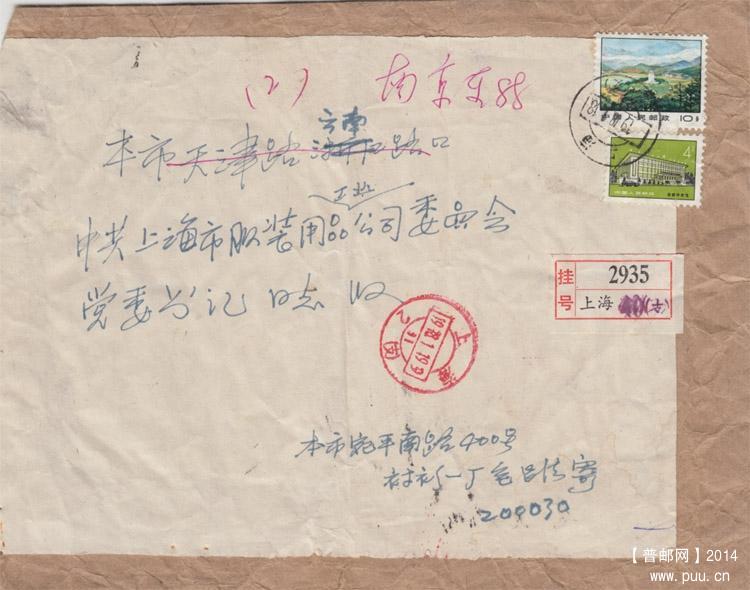 (2) 南京东路
云南
本市天津路 路口
工业
中共上海市服装用品公司委员会
党委书记 同志 收
中国人民邮政
10
4
中国人民邮政
挂号
2935
上海
上海
本市宛平南路400号
衬衫一厂 寄
200030
【普邮网】2014
www.puu.cn